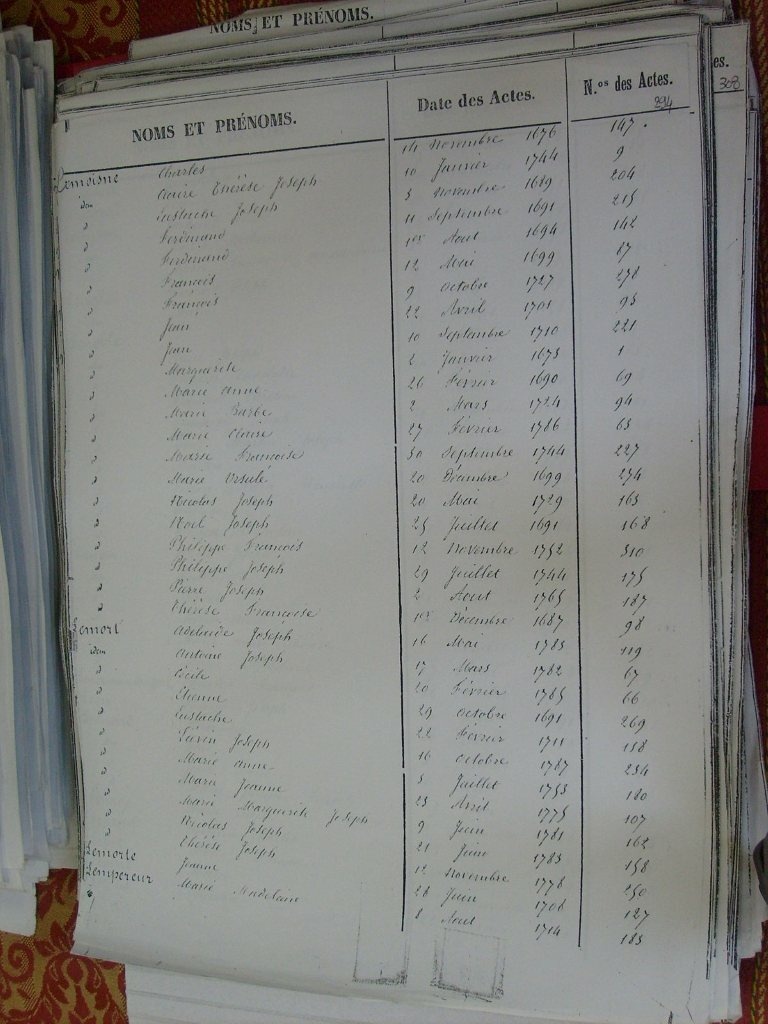 NOMS ET PRÉNOMS.
es.
308
NOMS ET PRÉNOMS. Date des Actes. N.os des Actes.
294
Lemoisne Charles 14 Novembre 1676 147
idem Claire Thérèse Joseph 10 Janvier 1744 9
d Eustache Joseph 3 Novembre 1689 204
d Ferdinand 11 Septembre 1691 215
d Ferdinand 1er Aout 1694 142
d François 12 Mai 1699 87
d François 9 Octobre 1727 278
d Jean 22 Avril 1701 93
d Jean 10 Septembre 1710 221
d Marguerite 2 Janvier 1673 1
d Marie Anne 26 Février 1690 69
d Marie Barbe 2 Mars 1724 94
d Marie Claire 27 Février 1786 63
d Marie Françoise 30 Septembre 1744 227
d Marie Ursule 20 Décembre 1699 274
d Nicolas Joseph 20 Mai 1729 163
d Noël Joseph 25 Juillet 1691 168
d Philippe François 12 Novembre 1752 310
d Philippe Joseph 29 Juillet 1744 175
d Pierre Joseph 2 Aout 1765 187
d Thérèse Françoise 1er Décembre 1687 98
Lemort Adelaide Joseph 16 Mai 1783 119
idem Antoine Joseph 17 Mars 1782 67
d Cécile 20 Février 1785 66
d Etienne 29 Octobre 1691 269
d Eustache 22 Février 1711 158
d Joseph 16 Octobre 1787 234
d Marie Anne 3 Juillet 1753 180
d Marie Jeanne 23 Avril 1775 107
d Marie Marguerite Joseph 9 Juin 1781 162
d Nicolas Joseph 21 Juin 1783 158
d Thérèse Joseph 12 Novembre 1778 250
Lemorte Jeanne 28 Juin 1706 127
Lempereur Marie Madelaine 8 Aout 1714 183